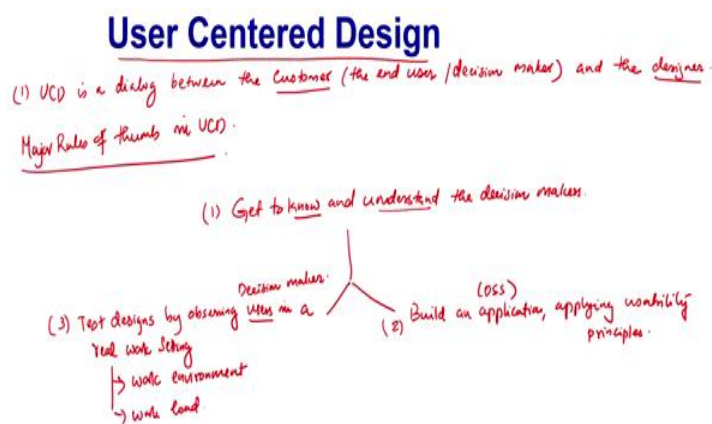 User Centered Design
(1) UCD is a dialog between the Customer (the end user / decision maker) and the designer.
Major Rules of thumb in UCD.
(1) Get to know and understand the decision makers.
Decision maker.
(3) Test designs by observing users in a
real work setting
→ work environment
→ work load
(DSS)
(2) Build an application, applying usability
principles.